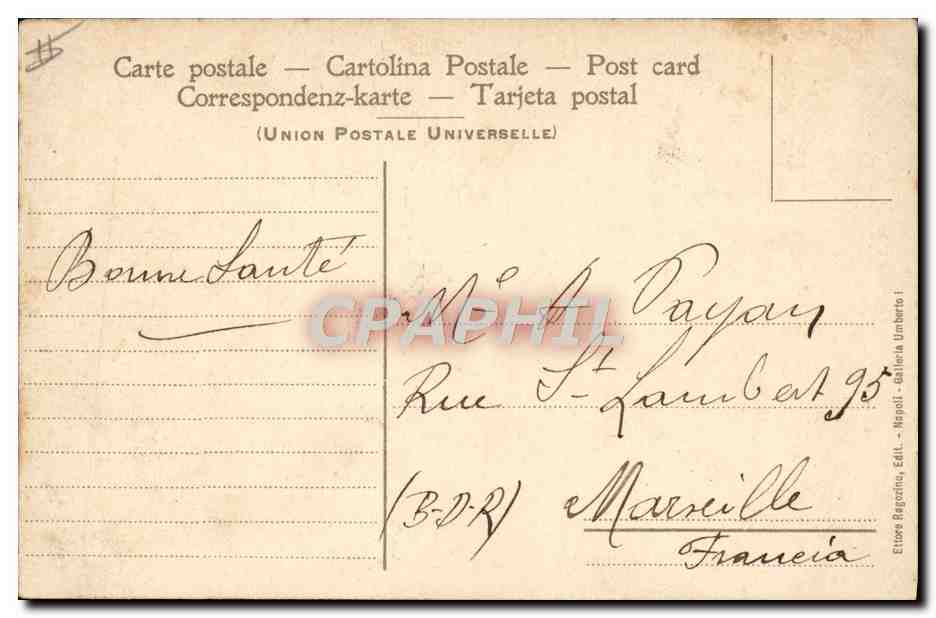 Carte postale — Cartolina Postale — Post card
Correspondenz-karte — Tarjeta postal
(UNION POSTALE UNIVERSELLE)
Bonne Santé
CPAPHIL
A. Payan
Rue St Lambert 95
(B-D-R) Marseille
Francia
Ettore Ragozino, Edit. - Napoli - Galleria Umberto I